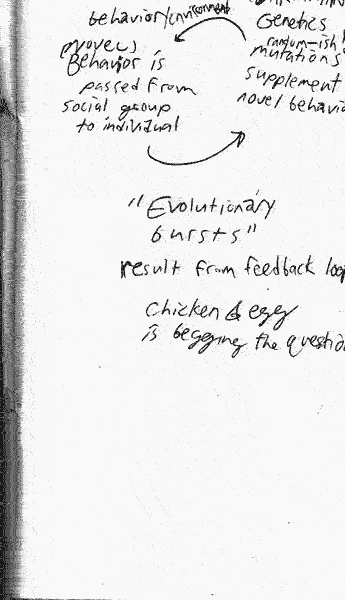 behavior/environment
Behavior is
passed from
social group
to individual
Genetics
random-ish
mutations
supplement
novel behavio
"Evolutionary
bursts"
result from feedback loop
Chicken & egg
is begging the question